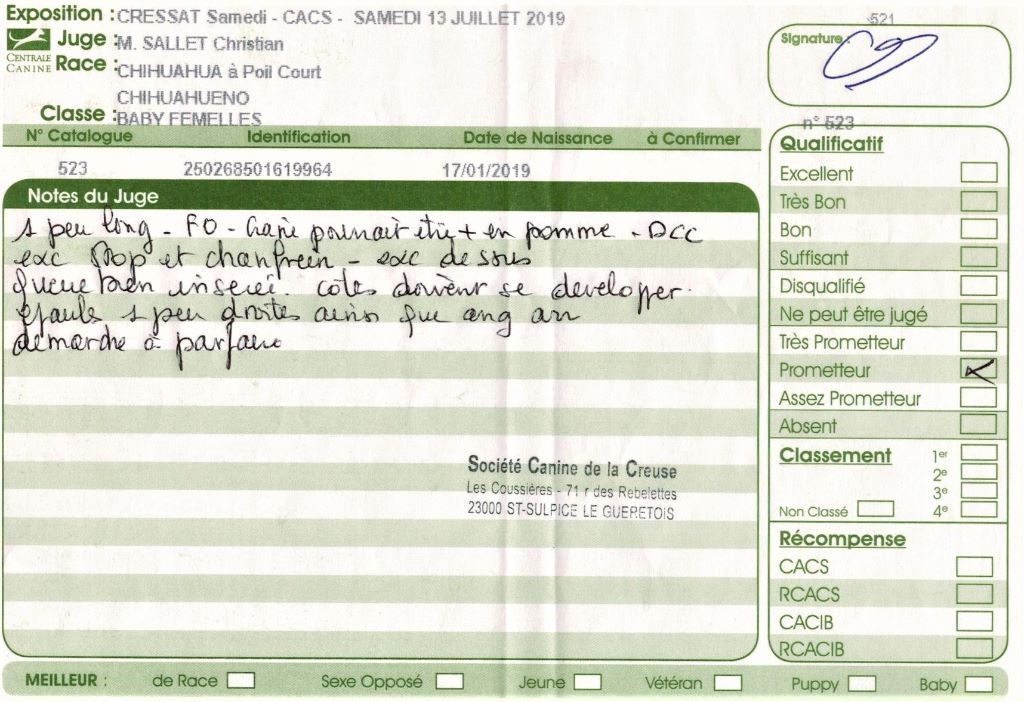 Exposition : CRESSAT Samedi - CACS - SAMEDI 13 JUILLET 2019
Juge : M. SALLET Christian
CENTRALE CANINE
Race : CHIHUAHUA à Poil Court
CHIHUAHUENO
Classe : BABY FEMELLES
521
Signature :
n° 523
N° Catalogue Identification Date de Naissance à Confirmer
523 250268501619964 17/01/2019
Notes du Juge
1 peu long - FO - Crane pourrait être + en pomme - DCC
exc stop et chanfrein - exc dessous
queue bien inserée. cotes doivent se developer.
epaules 1 peu droites ainsi que ang an
demarche à parfaire
Société Canine de la Creuse
Les Coussières - 71 r des Rebelettes
23000 ST-SULPICE LE GUERETOIS
Qualificatif
Excellent
Très Bon
Bon
Suffisant
Disqualifié
Ne peut être jugé
Très Prometteur
Prometteur
Assez Prometteur
Absent
Classement 1er
2e
3e
Non Classé 4e
Récompense
CACS
RCACS
CACIB
RCACIB
MEILLEUR : de Race Sexe Opposé Jeune Vétéran Puppy Baby